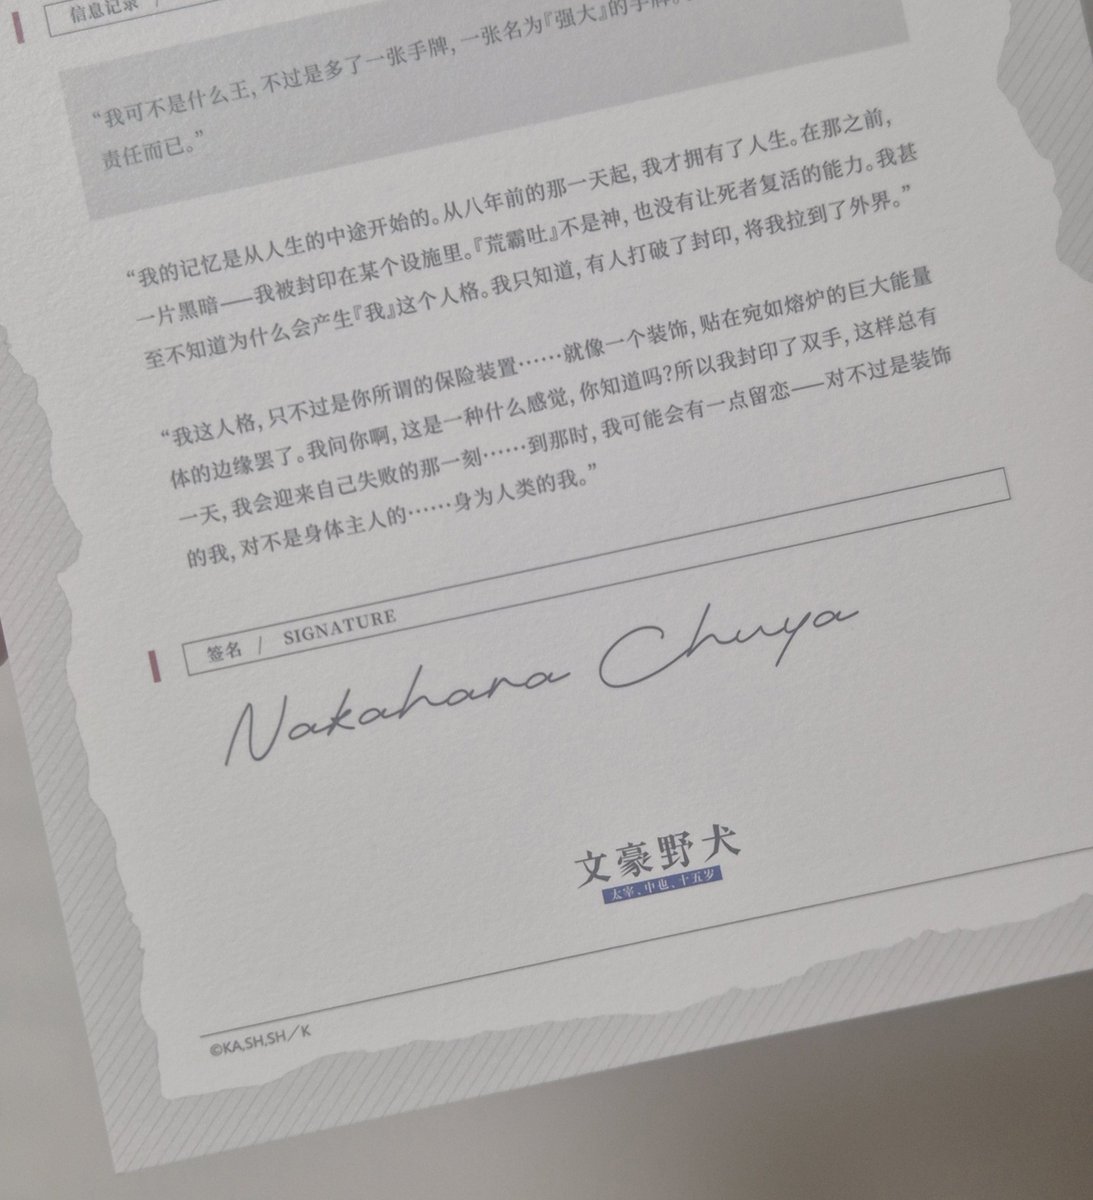 信息记录 /
“我可不是什么王，不过是多了一张手牌，一张名为『强大』的手牌。
责任而已。”
“我的记忆是从人生的中途开始的。从八年前的那一天起，我才拥有了人生。在那之前，
一片黑暗——我被封印在某个设施里。『荒霸吐』不是神，也没有让死者复活的能力。我甚
至不知道为什么会产生『我』这个人格。我只知道，有人打破了封印，将我拉到了外界。”
“我这人格，只不过是你所谓的保险装置……就像一个装饰，贴在宛如熔炉的巨大能量
体的边缘罢了。我问你啊，这是一种什么感觉，你知道吗？所以我封印了双手，这样总有
一天，我会迎来自己失败的那一刻……到那时，我可能会有一点留恋——对不过是装饰
的我，对不是身体主人的……身为人类的我。”
签名 / SIGNATURE
Nakahara Chuya
文豪野犬
太宰、中也、十五岁
©KA,SH,SH／K